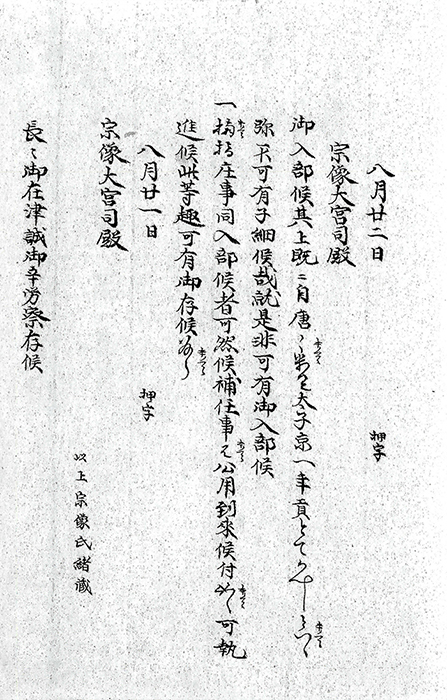 八月廿二日　押字
宗像大宮司殿
御入部候其上既ニ自唐々
太子京へ年貢とて
弥不可有子細候哉就是非可有御入部候
一　庄事同入部候者可然候補任事ハ公用到来候付　可執
進候此等趣可有御存候
八月廿一日　押字
宗像大宮司殿
以上宗像氏緒蔵
長々御在津誠御辛労察存候